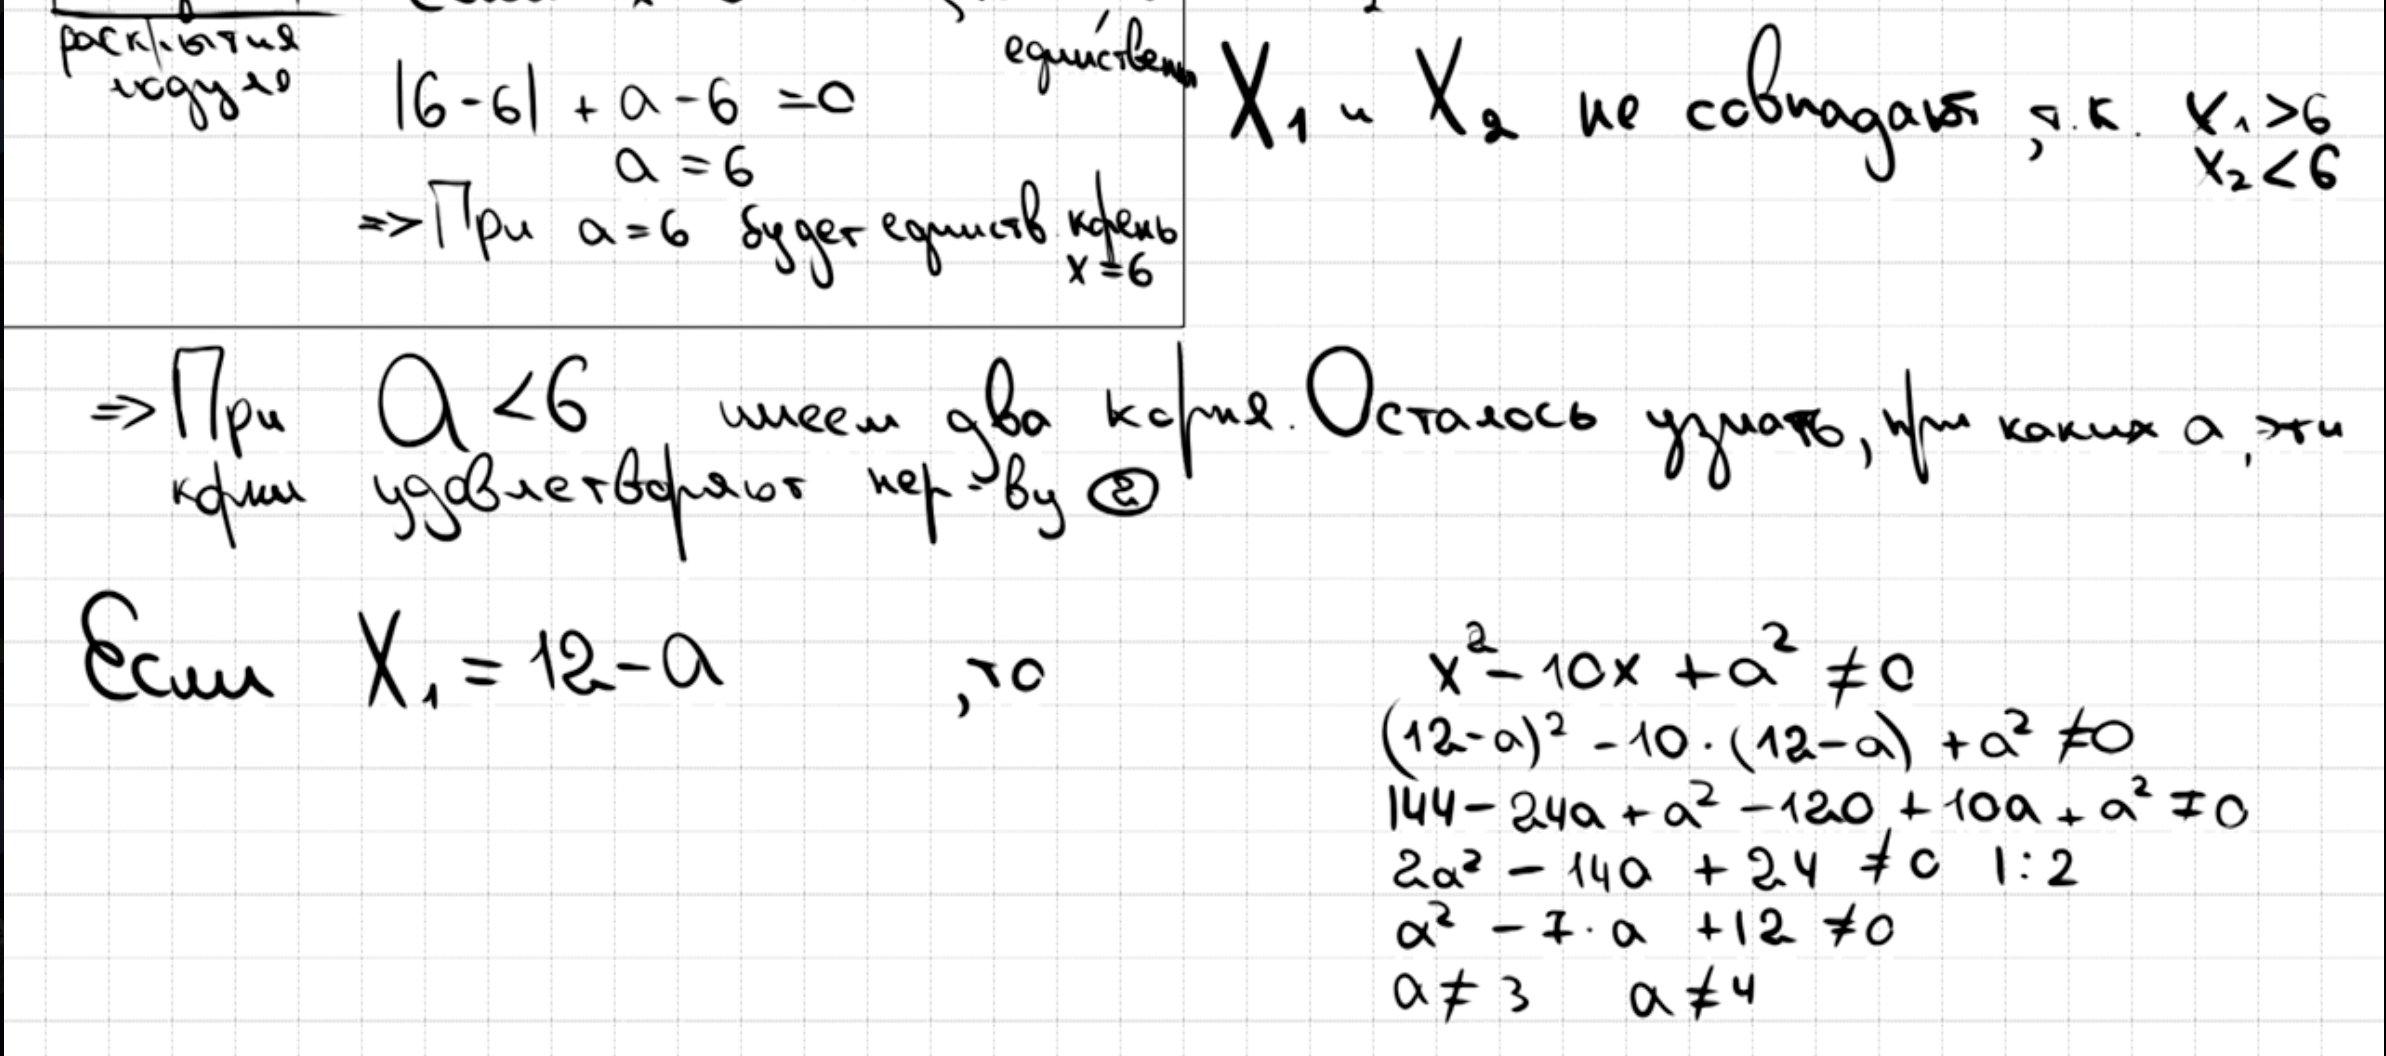 раскрытия
модуля
|6-6| + a - 6 = 0
a = 6
=> При a = 6 будет единств. корень
x = 6
единствен
X₁ и X₂ не совпадают, т.к. x₁ > 6
x₂ < 6
=> При a < 6 имеем два корня. Осталось узнать, при каких a, эти
корни удовлетворяют нер-ву ②
Если X₁ = 12 - a , то
x² - 10x + a² ≠ 0
(12-a)² - 10·(12-a) + a² ≠ 0
144 - 24a + a² - 120 + 10a + a² ≠ 0
2a² - 14a + 24 ≠ 0 |:2
a² - 7·a + 12 ≠ 0
a ≠ 3 a ≠ 4